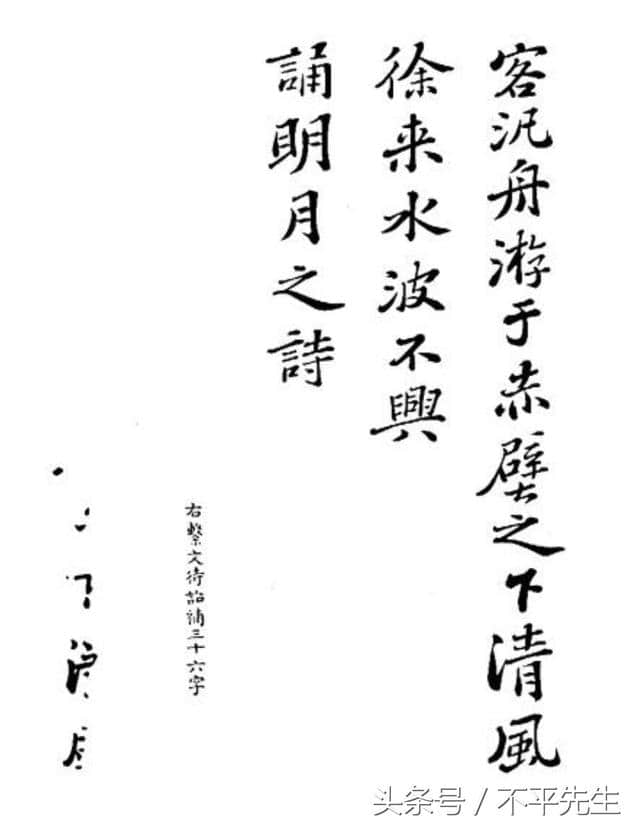 客汎舟游于赤壁之下清風
徐来水波不興
誦明月之詩
右繫文待詔補三十六字
头条号 / 不平先生